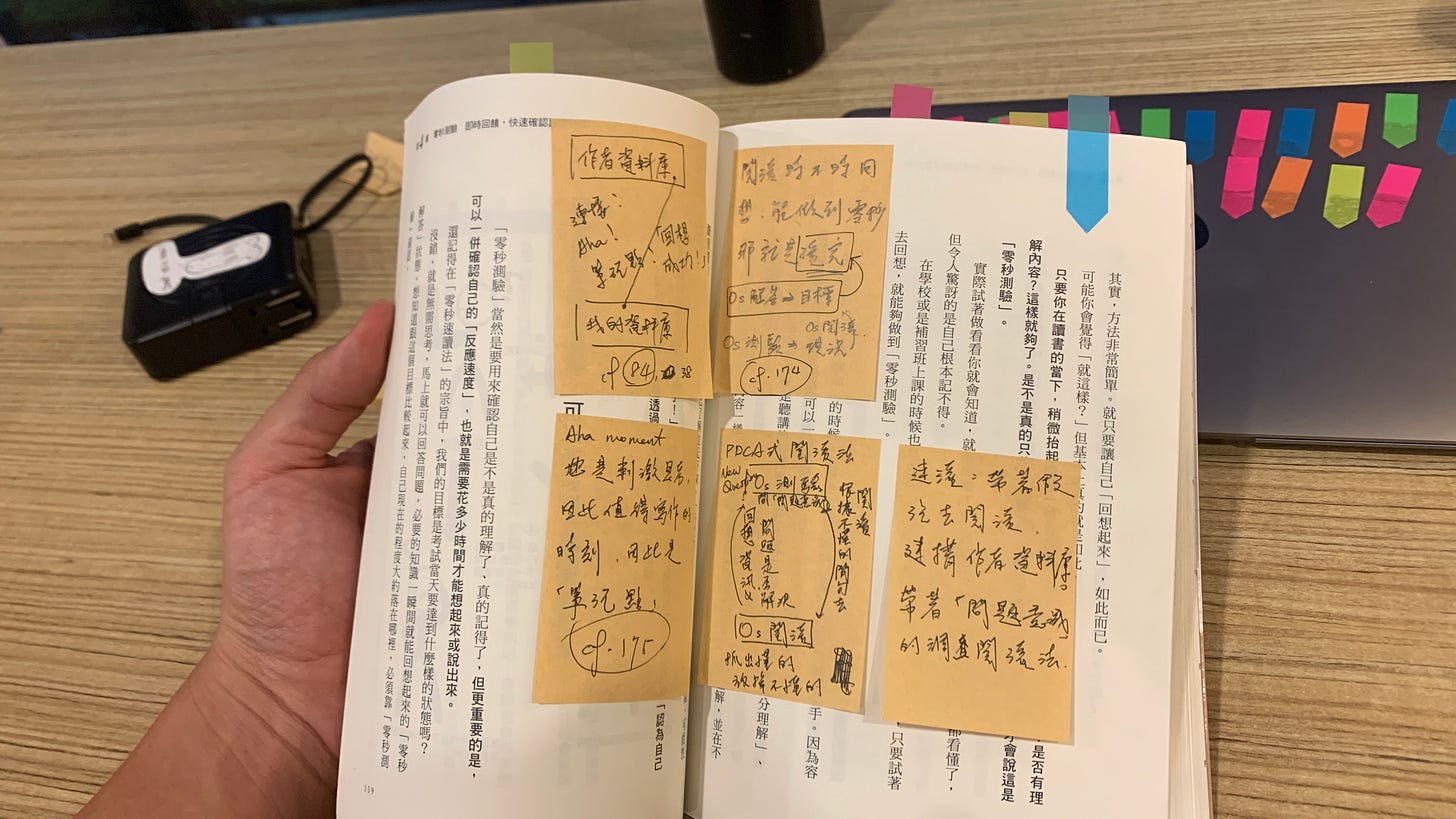 其實，方法非常簡單。就只要讓自己「回想起來」，如此而已。
可能你會覺得「就這樣？」但基本上真的就是如此
只要你在讀書的當下，稍微抬起
是否有理
解內容？這樣就夠了。是不是真的只
才會說這是
「零秒測驗」。
實際試著做看看你就會知道，就
都看懂了，
但令人驚訝的是自己根本記不得。
在學校或是補習班上課的時候也
只要試著
去回想，就能夠做到「零秒測驗」。
的時候
手。因為容
可以一
分理解」、
是聽講
解，並在不
閱讀時不時回
想，能做到零秒
那就是讀完
0s 解答⇒目標
0s 閱讀
0s 測驗⇒現況
cf. 174
PDCA式閱讀法
New Question
0s 測驗
問「問題意識」
根據不懂的開始去
閱讀
問題是否解決
回想資訊
0s 閱讀
抓出懂的
放掉不懂的
速讀：帶著假
說去閱讀，
連接作者資料庫。
帶著「問題意識」
的調查閱讀法.
第4章 零秒測驗 即時回饋，快速確認
作者資料庫
連接：
Aha!
單元點
回想
成功!!
我的資料庫
cf 84, 38
Aha moment
也是刺激思考，
因此值得寫作的
時刻，因此是
「單元點」
cf. 175
了！」
透過
「認為自己
「零秒測驗」當然是要用來確認自己是不是真的理解了、真的記得了，但更重要的是，
可以一併確認自己的「反應速度」，也就是需要花多少時間才能想起來或說出來。
還記得在「零秒速讀法」的宗旨中，我們的目標是考試當天要達到什麼樣的狀態嗎？
沒錯，就是無需思考，馬上就可以回答問題，必要的知識一瞬間就能回想起來的「零秒
解答」狀態。想知道跟這個目標比較起來，自己現在的程度大約落在哪裡，必須靠「零秒測
驗」確認。
159